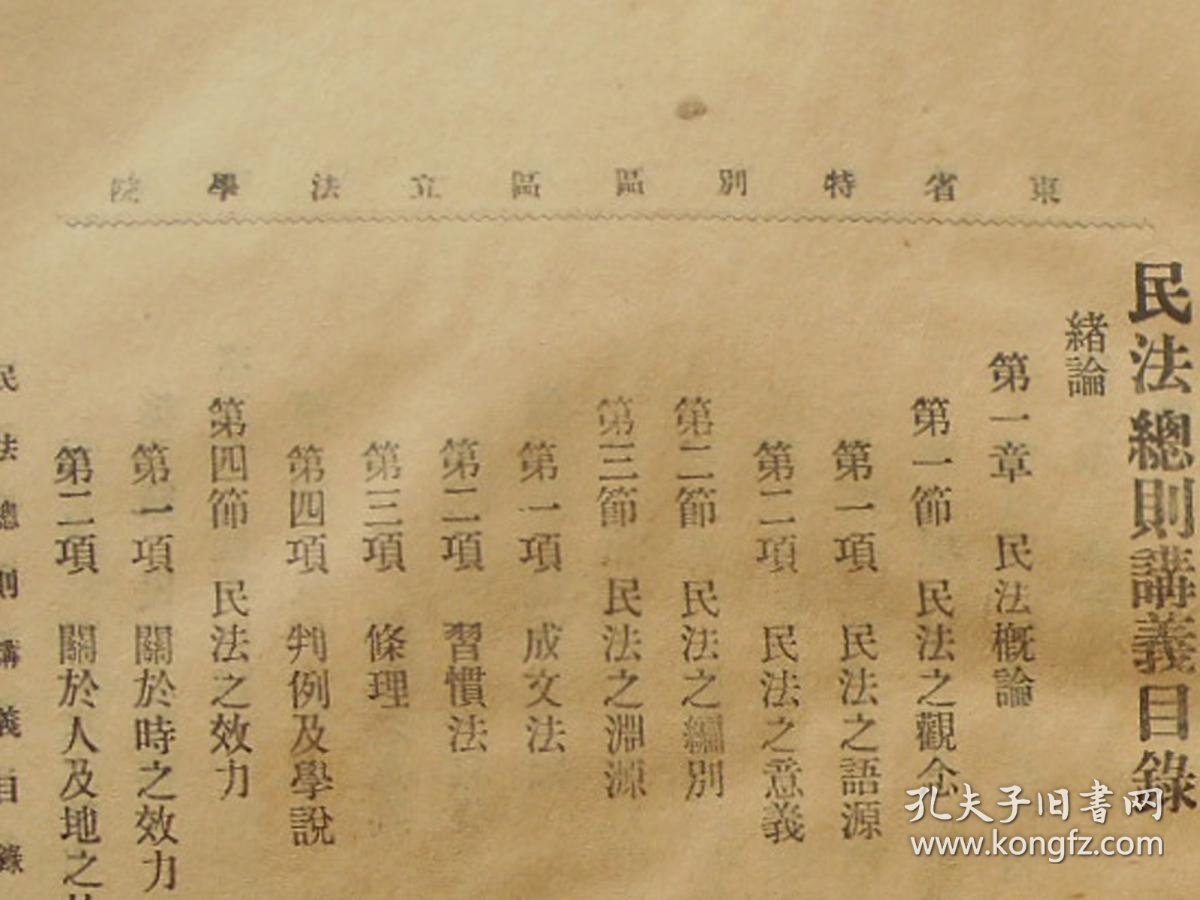 東省特別區區立法學院
民法總則講義目錄
緒論
第一章 民法概論
第一節 民法之觀念
第一項 民法之語源
第二項 民法之意義
第二節 民法之編別
第三節 民法之淵源
第一項 成文法
第二項 習慣法
第三項 條理
第四項 判例及學說
第四節 民法之效力
第一項 關於時之效力
第二項 關於人及地之
民法總則講義目錄
孔夫子旧書网
www.kongfz.com